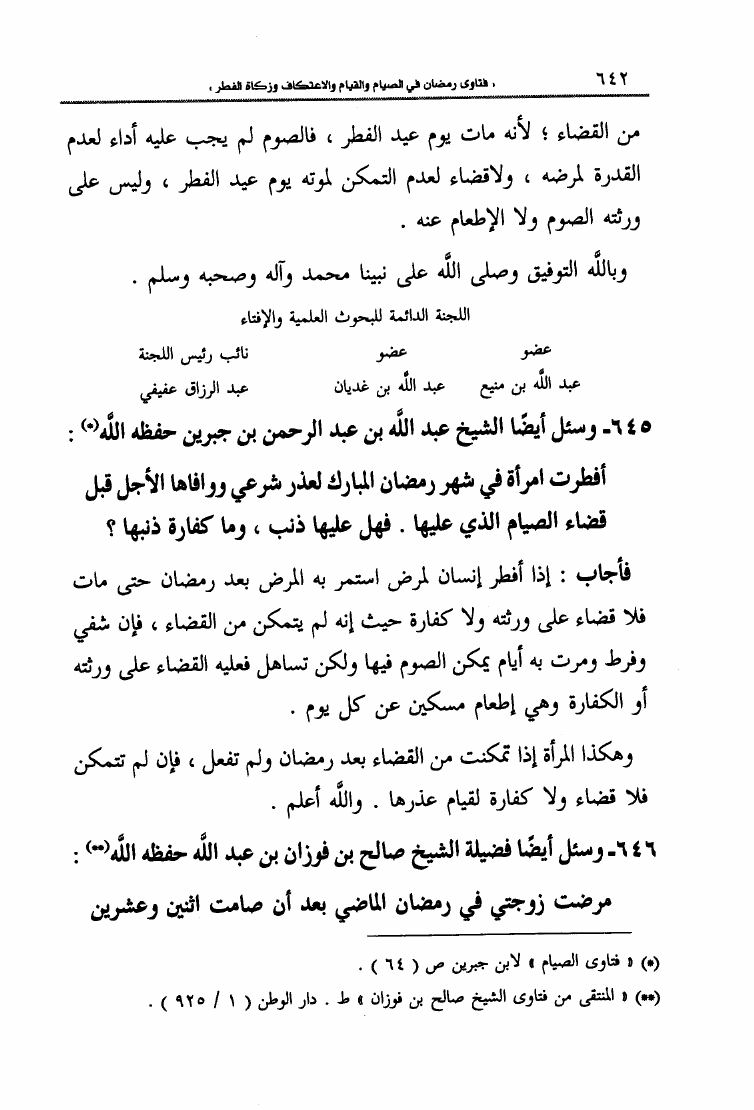 ٦٤٢ « فتاوى رمضان في الصيام والقيام والاعتكاف وزكاة الفطر »
من القضاء ؛ لأنه مات يوم عيد الفطر ، فالصوم لم يجب عليه أداء لعدم
القدرة لمرضه ، ولاقضاء لعدم التمكن لموته يوم عيد الفطر ، وليس على
ورثته الصوم ولا الإطعام عنه .
وباللَّه التوفيق وصلى اللَّه على نبينا محمد وآله وصحبه وسلم .
اللجنة الدائمة للبحوث العلمية والإفتاء
عضو عضو نائب رئيس اللجنة
عبد اللَّه بن منيع عبد اللَّه بن غديان عبد الرزاق عفيفي
٦٤٥ـ وسئل أيضًا الشيخ عبد اللَّه بن عبد الرحمن بن جبرين حفظه اللَّه(*) :
أفطرت امرأة في شهر رمضان المبارك لعذر شرعي ووافاها الأجل قبل
قضاء الصيام الذي عليها . فهل عليها ذنب ، وما كفارة ذنبها ؟
فأجاب : إذا أفطر إنسان لمرض استمر به المرض بعد رمضان حتى مات
فلا قضاء على ورثته ولا كفارة حيث إنه لم يتمكن من القضاء ، فإن شفي
وفرط ومرت به أيام يمكن الصوم فيها ولكن تساهل فعليه القضاء على ورثته
أو الكفارة وهي إطعام مسكين عن كل يوم .
وهكذا المرأة إذا تمكنت من القضاء بعد رمضان ولم تفعل ، فإن لم تتمكن
فلا قضاء ولا كفارة لقيام عذرها . واللَّه أعلم .
٦٤٦ـ وسئل أيضًا فضيلة الشيخ صالح بن فوزان بن عبد اللَّه حفظه اللَّه(**) :
مرضت زوجتي في رمضان الماضي بعد أن صامت اثنين وعشرين
(*) « فتاوى الصيام » لابن جبرين ص ( ٦٤ ) .
(**) « المنتقى من فتاوى الشيخ صالح بن فوزان » ط . دار الوطن ( ١ / ٩٢٥ ) .